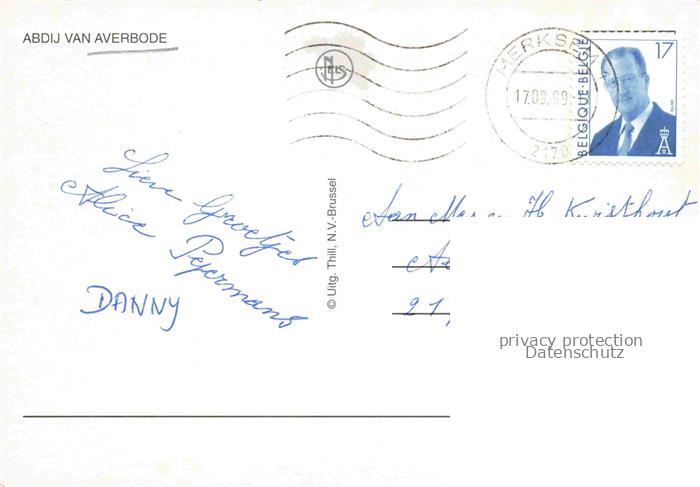 ABDIJ VAN AVERBODE
NELS
MERKSEM
17.09.99
2170
BELGIQUE-BELGIË
17
Lieve Groetjes
Alice Pepermans
DANNY
© Uitg. Thill, N.V.-Brussel
Aan
21
privacy protection
Datenschutz